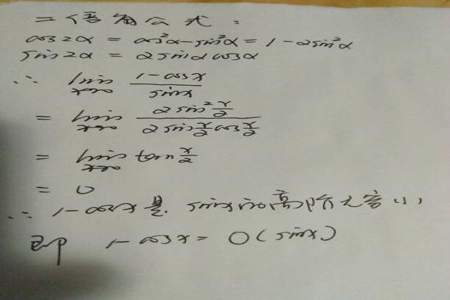 二倍角公式:
cos2α = cos²α-sin²α = 1-2sin²α
sin2α = 2sinαcosα
∴ lim x→0 (1-cosx)/(sinx)
= lim x→0 (2sin² x/2)/(2sin x/2 cos x/2)
= lim x→0 tan x/2
= 0
∴ 1-cosx是 sinx的高阶无穷小
即 1-cosx = O(sinx)